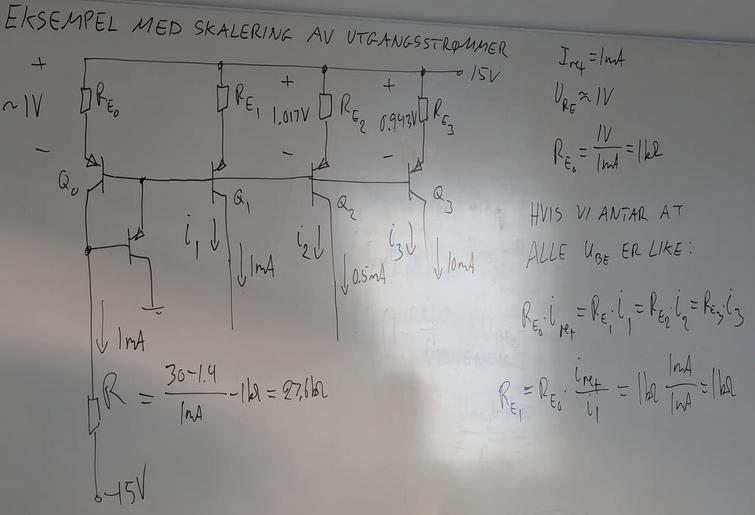 EKSEMPEL MED SKALERING AV UTGANGSSTRØMMER
+
~1V
-
R_E0
Q0
R_E1
+
1.017V
-
R_E2
+
0.943V
-
R_E3
15V
Q1
Q2
Q3
i1
1mA
i2
0.5mA
i3
10mA
1mA
R = (30-1.4)/1mA - 1kΩ = 27,6kΩ
-15V
I_ref = 1mA
U_RE ≈ 1V
R_E0 = 1V/1mA = 1kΩ
HVIS VI ANTAR AT
ALLE U_BE ER LIKE:
R_E0 · i_ref = R_E1 · i1 = R_E2 · i2 = R_E3 · i3
R_E1 = R_E0 · i_ref/i1 = 1kΩ 1mA/1mA = 1kΩ